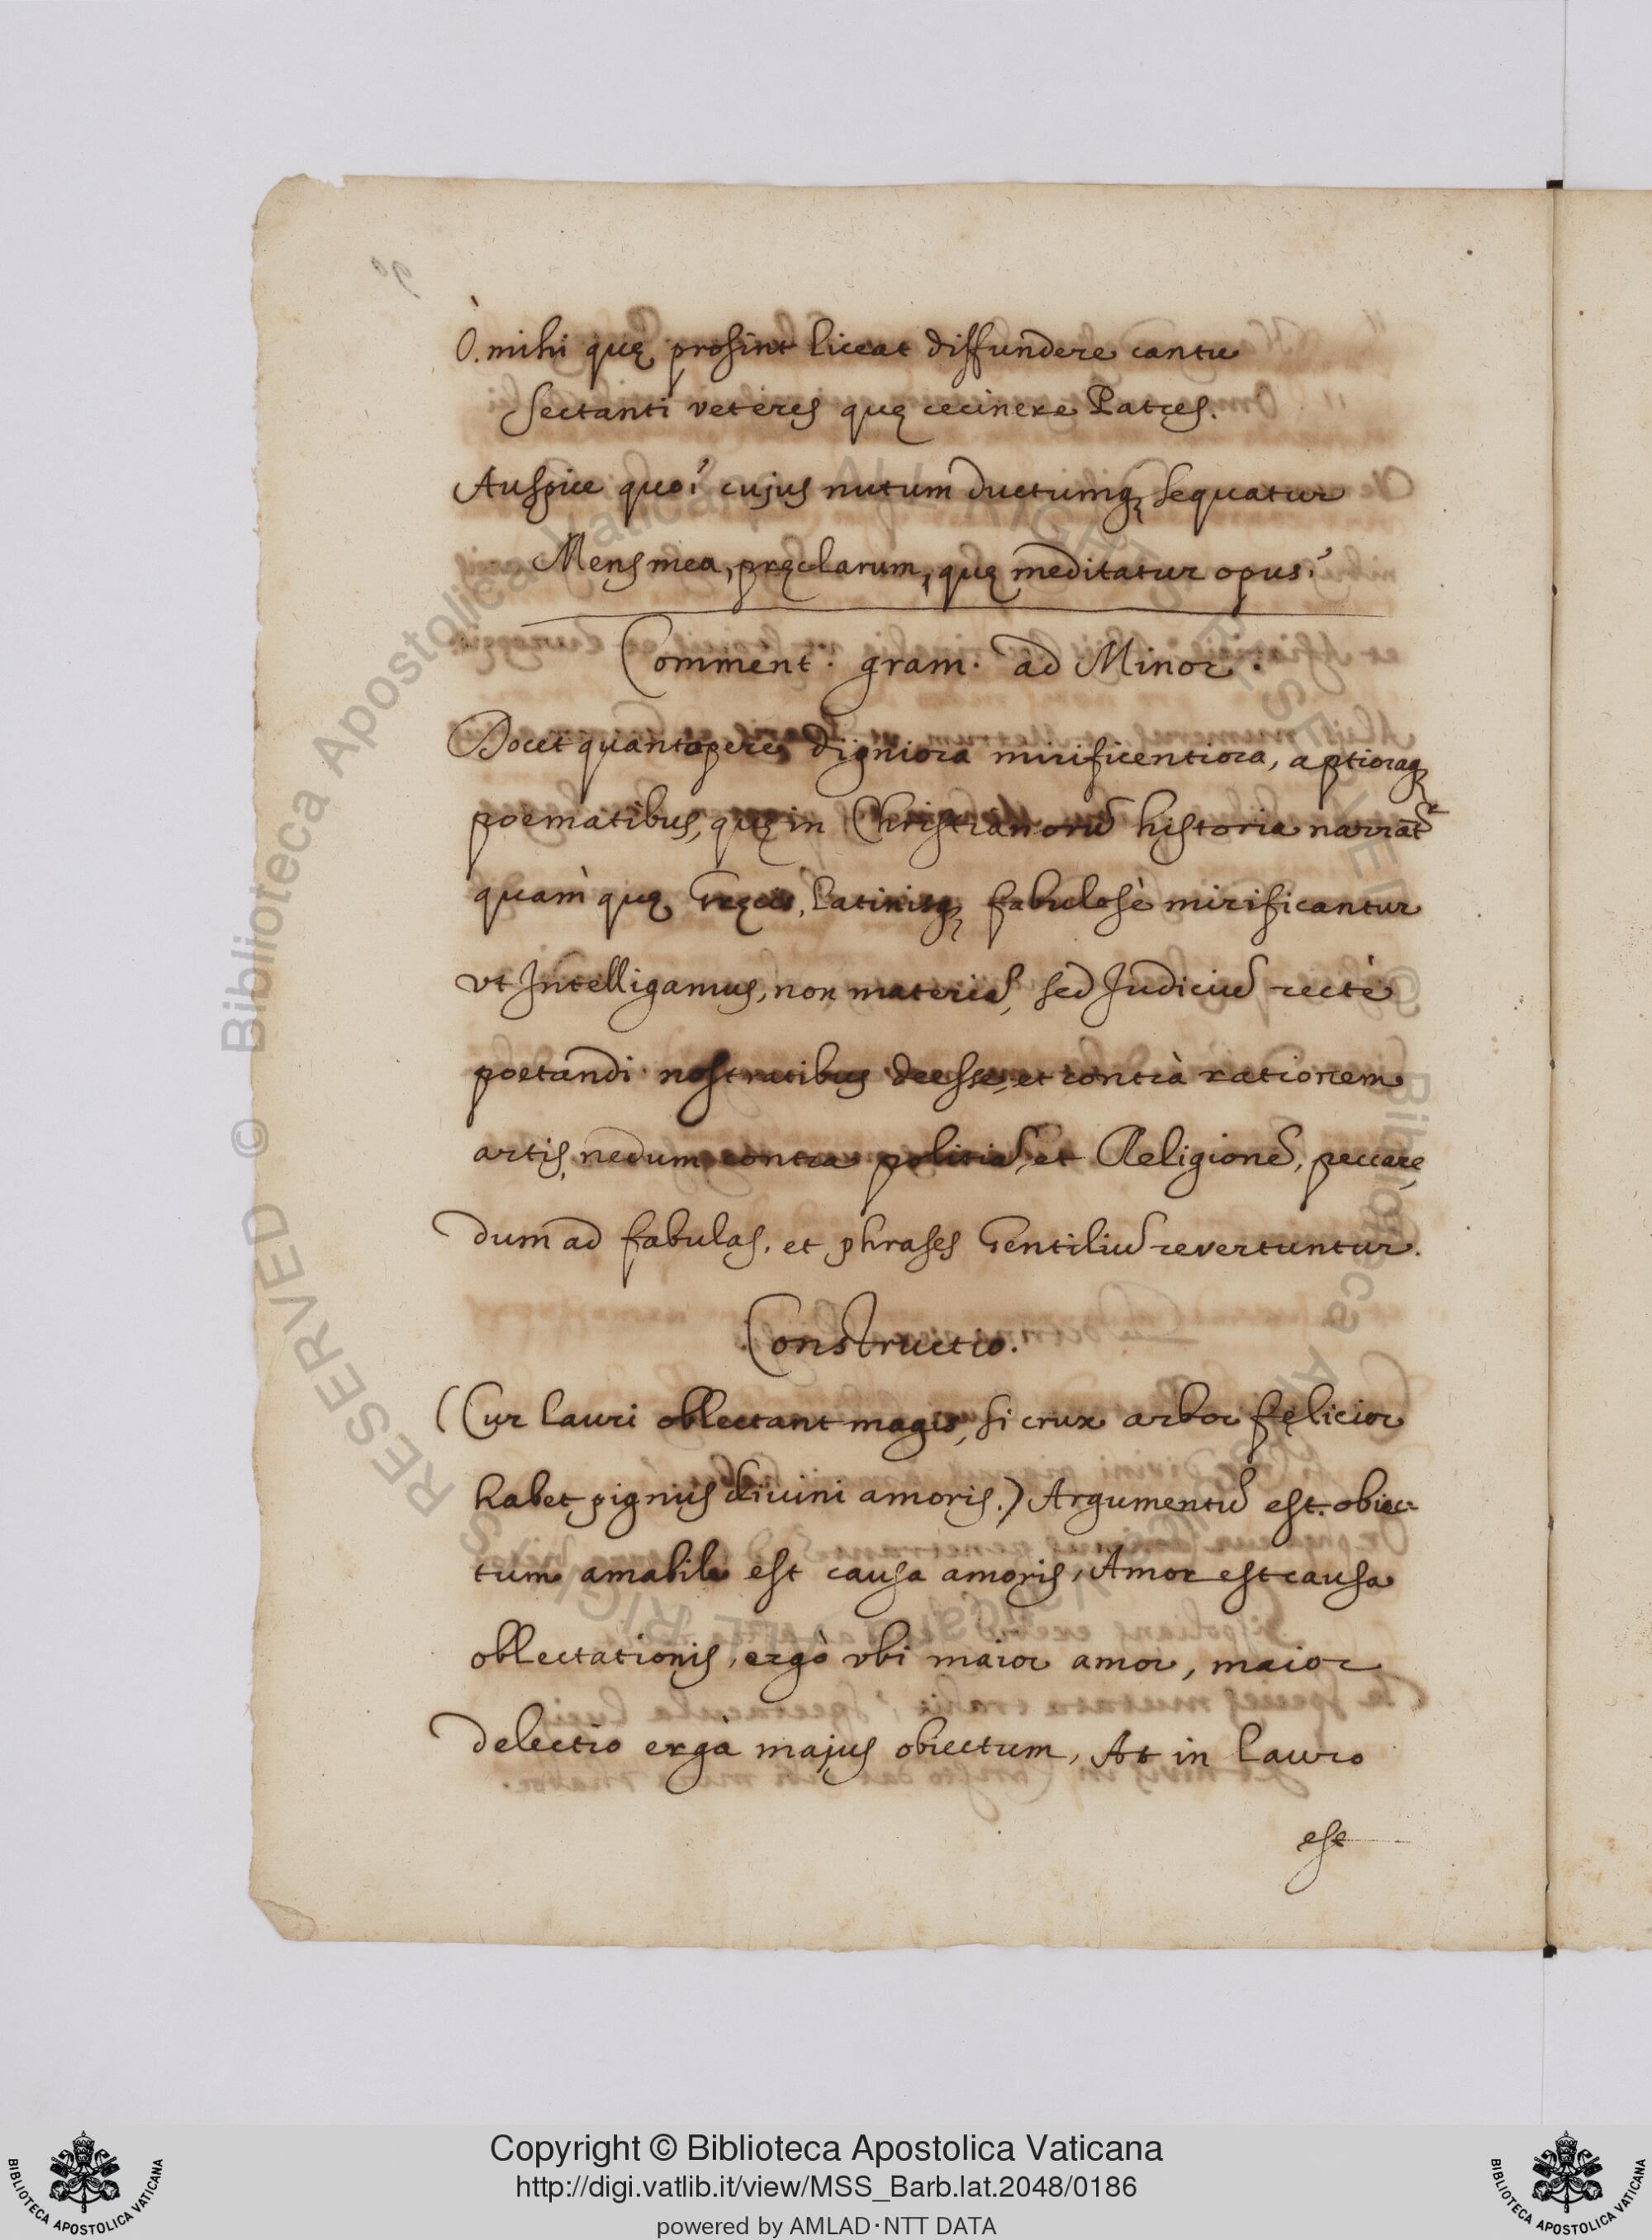 Ò. mihi quę prosint liceat diffundere cantu
Sectanti veteres quę cecinere Patres.
Auspice quo? cujus nutum ductumq, sequatur
Mens mea, pręclarum, quę meditatur opus?
Comment. gram. ad Minor.
Docet quantopere digniora mirificentiora, aptioraq,
poematibus, quę in Christianorũ historia narrat~
quàm quę Gręcis, Latinisq, fabulosè mirificantur
vt Intelligamus, non materiã, sed Judiciũ rectè
poetandi nostratibus deesse, et contrà rationem
artis, nedum contra politiã, et Religionẽ, peccare,
dum ad fabulas, et phrases Gentiliũ revertuntur.
Constructio.
(Cur lauri oblectant magis, si crux arbor fęlicior
habet pignus divini amoris.) Argumentũ est. obiec-
tum amabile est causa amoris, Amor est causa
oblectationis, ergò vbi maior amor, maior
delectio ergà majus obiectum, At in lauro
est
© Biblioteca Apostolica Vaticana ALL RIGHTS RESERVED
© Biblioteca Apostolica Vaticana ALL RIGHTS RESERVED
Copyright © Biblioteca Apostolica Vaticana
http://digi.vatlib.it/view/MSS_Barb.lat.2048/0186
powered by AMLAD·NTT DATA
BIBLIOTECA APOSTOLICA VATICANA
BIBLIOTECA APOSTOLICA VATICANA